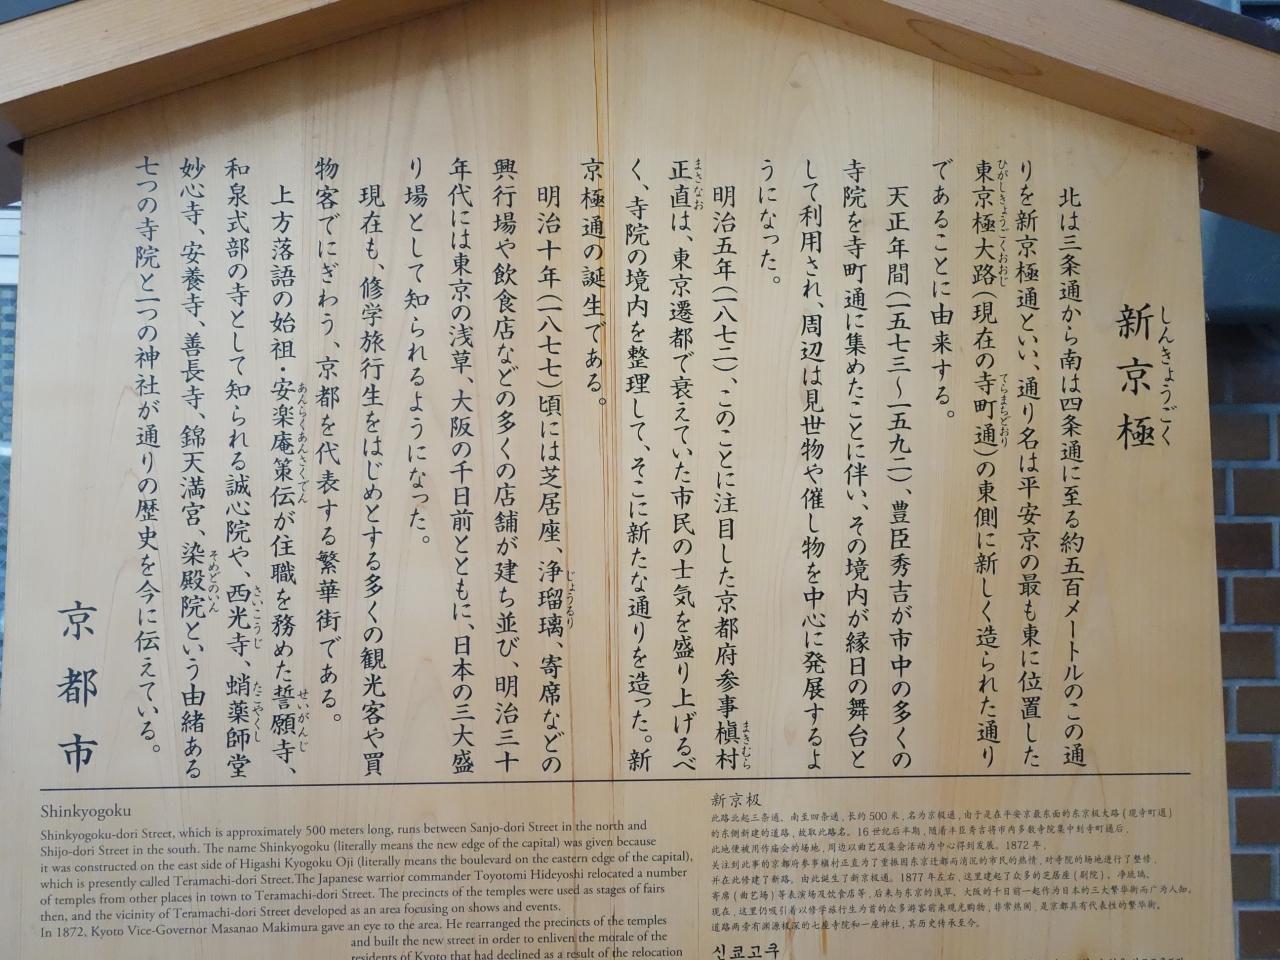 しんきょうごく
新京極
北は三条通から南は四条通に至る約五百メートルのこの通
りを新京極通といい、通り名は平安京の最も東に位置した
ひがしきょうごくおおじ
てらまちどおり
東京極大路(現在の寺町通)の東側に新しく造られた通り
であることに由来する。
天正年間(一五七三〜一五九二)、豊臣秀吉が市中の多くの
寺院を寺町通に集めたことに伴い、その境内が縁日の舞台と
して利用され、周辺は見世物や催し物を中心に発展するよ
うになった。
まきむら
明治五年(一八七二)、このことに注目した京都府参事槇村
まさなお
正直は、東京遷都で衰えていた市民の士気を盛り上げるべ
く、寺院の境内を整理して、そこに新たな通りを造った。新
京極通の誕生である。
じょうるり
明治十年(一八七七)頃には芝居座、浄瑠璃、寄席などの
興行場や飲食店などの多くの店舗が建ち並び、明治三十
年代には東京の浅草、大阪の千日前とともに、日本の三大盛
り場として知られるようになった。
現在も、修学旅行生をはじめとする多くの観光客や買
物客でにぎわう、京都を代表する繁華街である。
あんらくあんさくでん
せいがんじ
上方落語の始祖・安楽庵策伝が住職を務めた誓願寺、
さいこうじ
たこやくし
和泉式部の寺として知られる誠心院や、西光寺、蛸薬師堂
そめどのいん
妙心寺、安養寺、善長寺、錦天満宮、染殿院という由緒ある
七つの寺院と一つの神社が通りの歴史を今に伝えている。
京都市
Shinkyogoku
Shinkyogoku-dori Street, which is approximately 500 meters long, runs between Sanjo-dori Street in the north and
Shijo-dori Street in the south. The name Shinkyogoku (literally means the new edge of the capital) was given because
it was constructed on the east side of Higashi Kyogoku Oji (literally means the boulevard on the eastern edge of the capital),
which is presently called Teramachi-dori Street.The Japanese warrior commander Toyotomi Hideyoshi relocated a number
of temples from other places in town to Teramachi-dori Street. The precincts of the temples were used as stages of fairs
then, and the vicinity of Teramachi-dori Street developed as an area focusing on shows and events.
In 1872, Kyoto Vice-Governor Masanao Makimura gave an eye to the area. He rearranged the precincts of the temples
and built the new street in order to enliven the morale of the
residents of Kyoto that had declined as a result of the relocation
新京极
此路北起三条通、南至四条通,长约500米,名为京极通,由于是在平安京最东面的东京极大路(现寺町通)
的东侧新建的道路,故取此路名。16世纪后半期,随着丰臣秀吉将市内多数寺院集中到寺町通后,
此地便被用作庙会的场地,周边以曲艺及集会活动为中心得到发展。1872年,
关注到此事的京都府参事槇村正直为了重振因东京迁都而消沉的市民的热情,对寺院的场地进行了整修,
并在此修建了新路。由此诞生了新京极通。1877年左右,这里建起了众多的芝居座(剧院)、净琉璃、
寄席(曲艺场)等表演场及饮食店等,后来与东京的浅草、大阪的千日前一起作为日本的三大繁华街而广为人知。
现在,这里仍吸引着以修学旅行生为首的众多游客前来观光购物,非常热闹,是京都具有代表性的繁华街。
道路两旁有渊源极深的七座寺院和一座神社,其历史传承至今。
신쿄고쿠